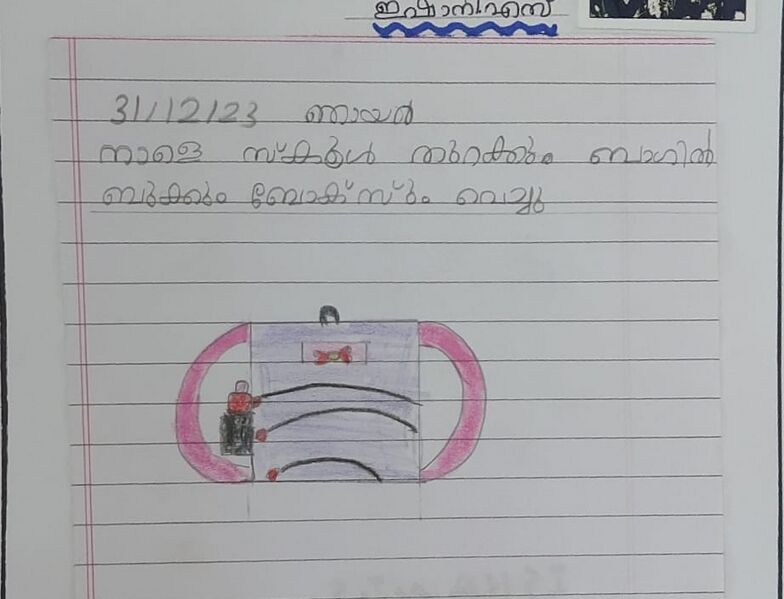 ഇഷാനിഎസ്
31/12/23 ഞായർ
നാളെ സ്കൂൾ തുറക്കും ബാഗിൽ
ബുക്കും ബോക്സും വെച്ചു